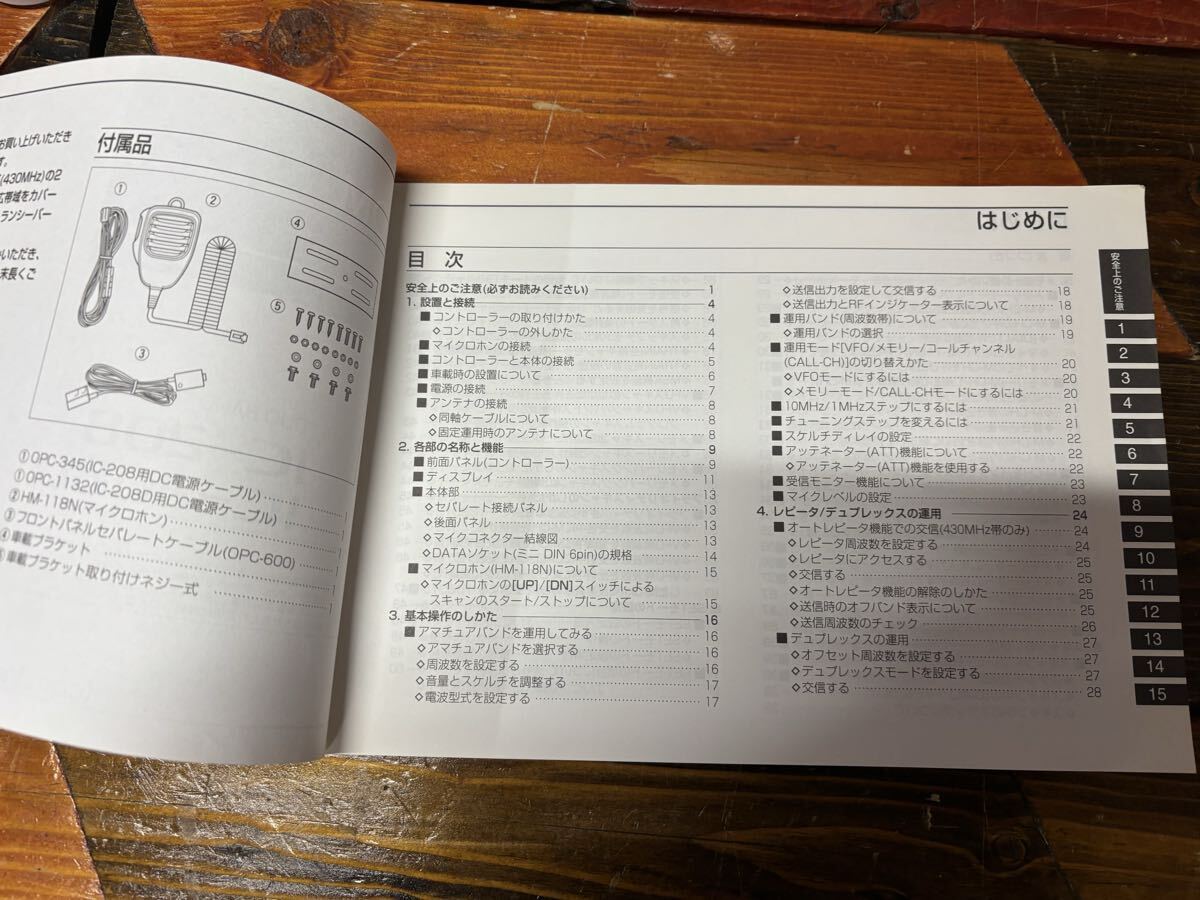 お買い上げいただき
す。
(430MHz)の2
広帯域をカバー
ランシーバー
いただき、
末長くご
付属品
①
②
③
④
⑤
①OPC-345(IC-208用DC電源ケーブル)
①OPC-1132(IC-208D用DC電源ケーブル)
②HM-118N(マイクロホン)
③フロントパネルセパレートケーブル(OPC-600)
④車載ブラケット
車載ブラケット取り付けネジ一式
はじめに
目 次
安全上のご注意(必ずお読みください) 1
1. 設置と接続 4
■コントローラーの取り付けかた 4
◇コントローラーの外しかた 4
■マイクロホンの接続 4
■コントローラーと本体の接続 5
■車載時の設置について 6
■電源の接続 7
■アンテナの接続 8
◇同軸ケーブルについて 8
◇固定運用時のアンテナについて 8
2. 各部の名称と機能 9
■前面パネル(コントローラー) 9
■ディスプレイ 11
■本体部 13
◇セパレート接続パネル 13
◇後面パネル 13
◇マイクコネクター結線図 13
◇DATAソケット(ミニ DIN 6pin)の規格 14
■マイクロホン(HM-118N)について 15
◇マイクロホンの[UP]/[DN]スイッチによる
スキャンのスタート/ストップについて 15
3. 基本操作のしかた 16
■アマチュアバンドを運用してみる 16
◇アマチュアバンドを選択する 16
◇周波数を設定する 16
◇音量とスケルチを調整する 17
◇電波型式を設定する 17
◇送信出力を設定して交信する 18
◇送信出力とRFインジケーター表示について 18
■運用バンド(周波数帯)について 19
◇運用バンドの選択 19
■運用モード[VFO/メモリー/コールチャンネル
(CALL-CH)]の切り替えかた 20
◇VFOモードにするには 20
◇メモリーモード/CALL-CHモードにするには 20
■10MHz/1MHzステップにするには 21
■チューニングステップを変えるには 21
■スケルチディレイの設定 22
■アッテネーター(ATT)機能について 22
◇アッテネーター(ATT)機能を使用する 22
■受信モニター機能について 23
■マイクレベルの設定 23
4. レピータ/デュプレックスの運用 24
■オートレピータ機能での交信(430MHz帯のみ) 24
◇レピータ周波数を設定する 24
◇レピータにアクセスする 25
◇交信する 25
◇オートレピータ機能の解除のしかた 25
◇送信時のオフバンド表示について 25
◇送信周波数のチェック 26
■デュプレックスの運用 27
◇オフセット周波数を設定する 27
◇デュプレックスモードを設定する 27
◇交信する 28
安全上のご注意
1
2
3
4
5
6
7
8
9
10
11
12
13
14
15